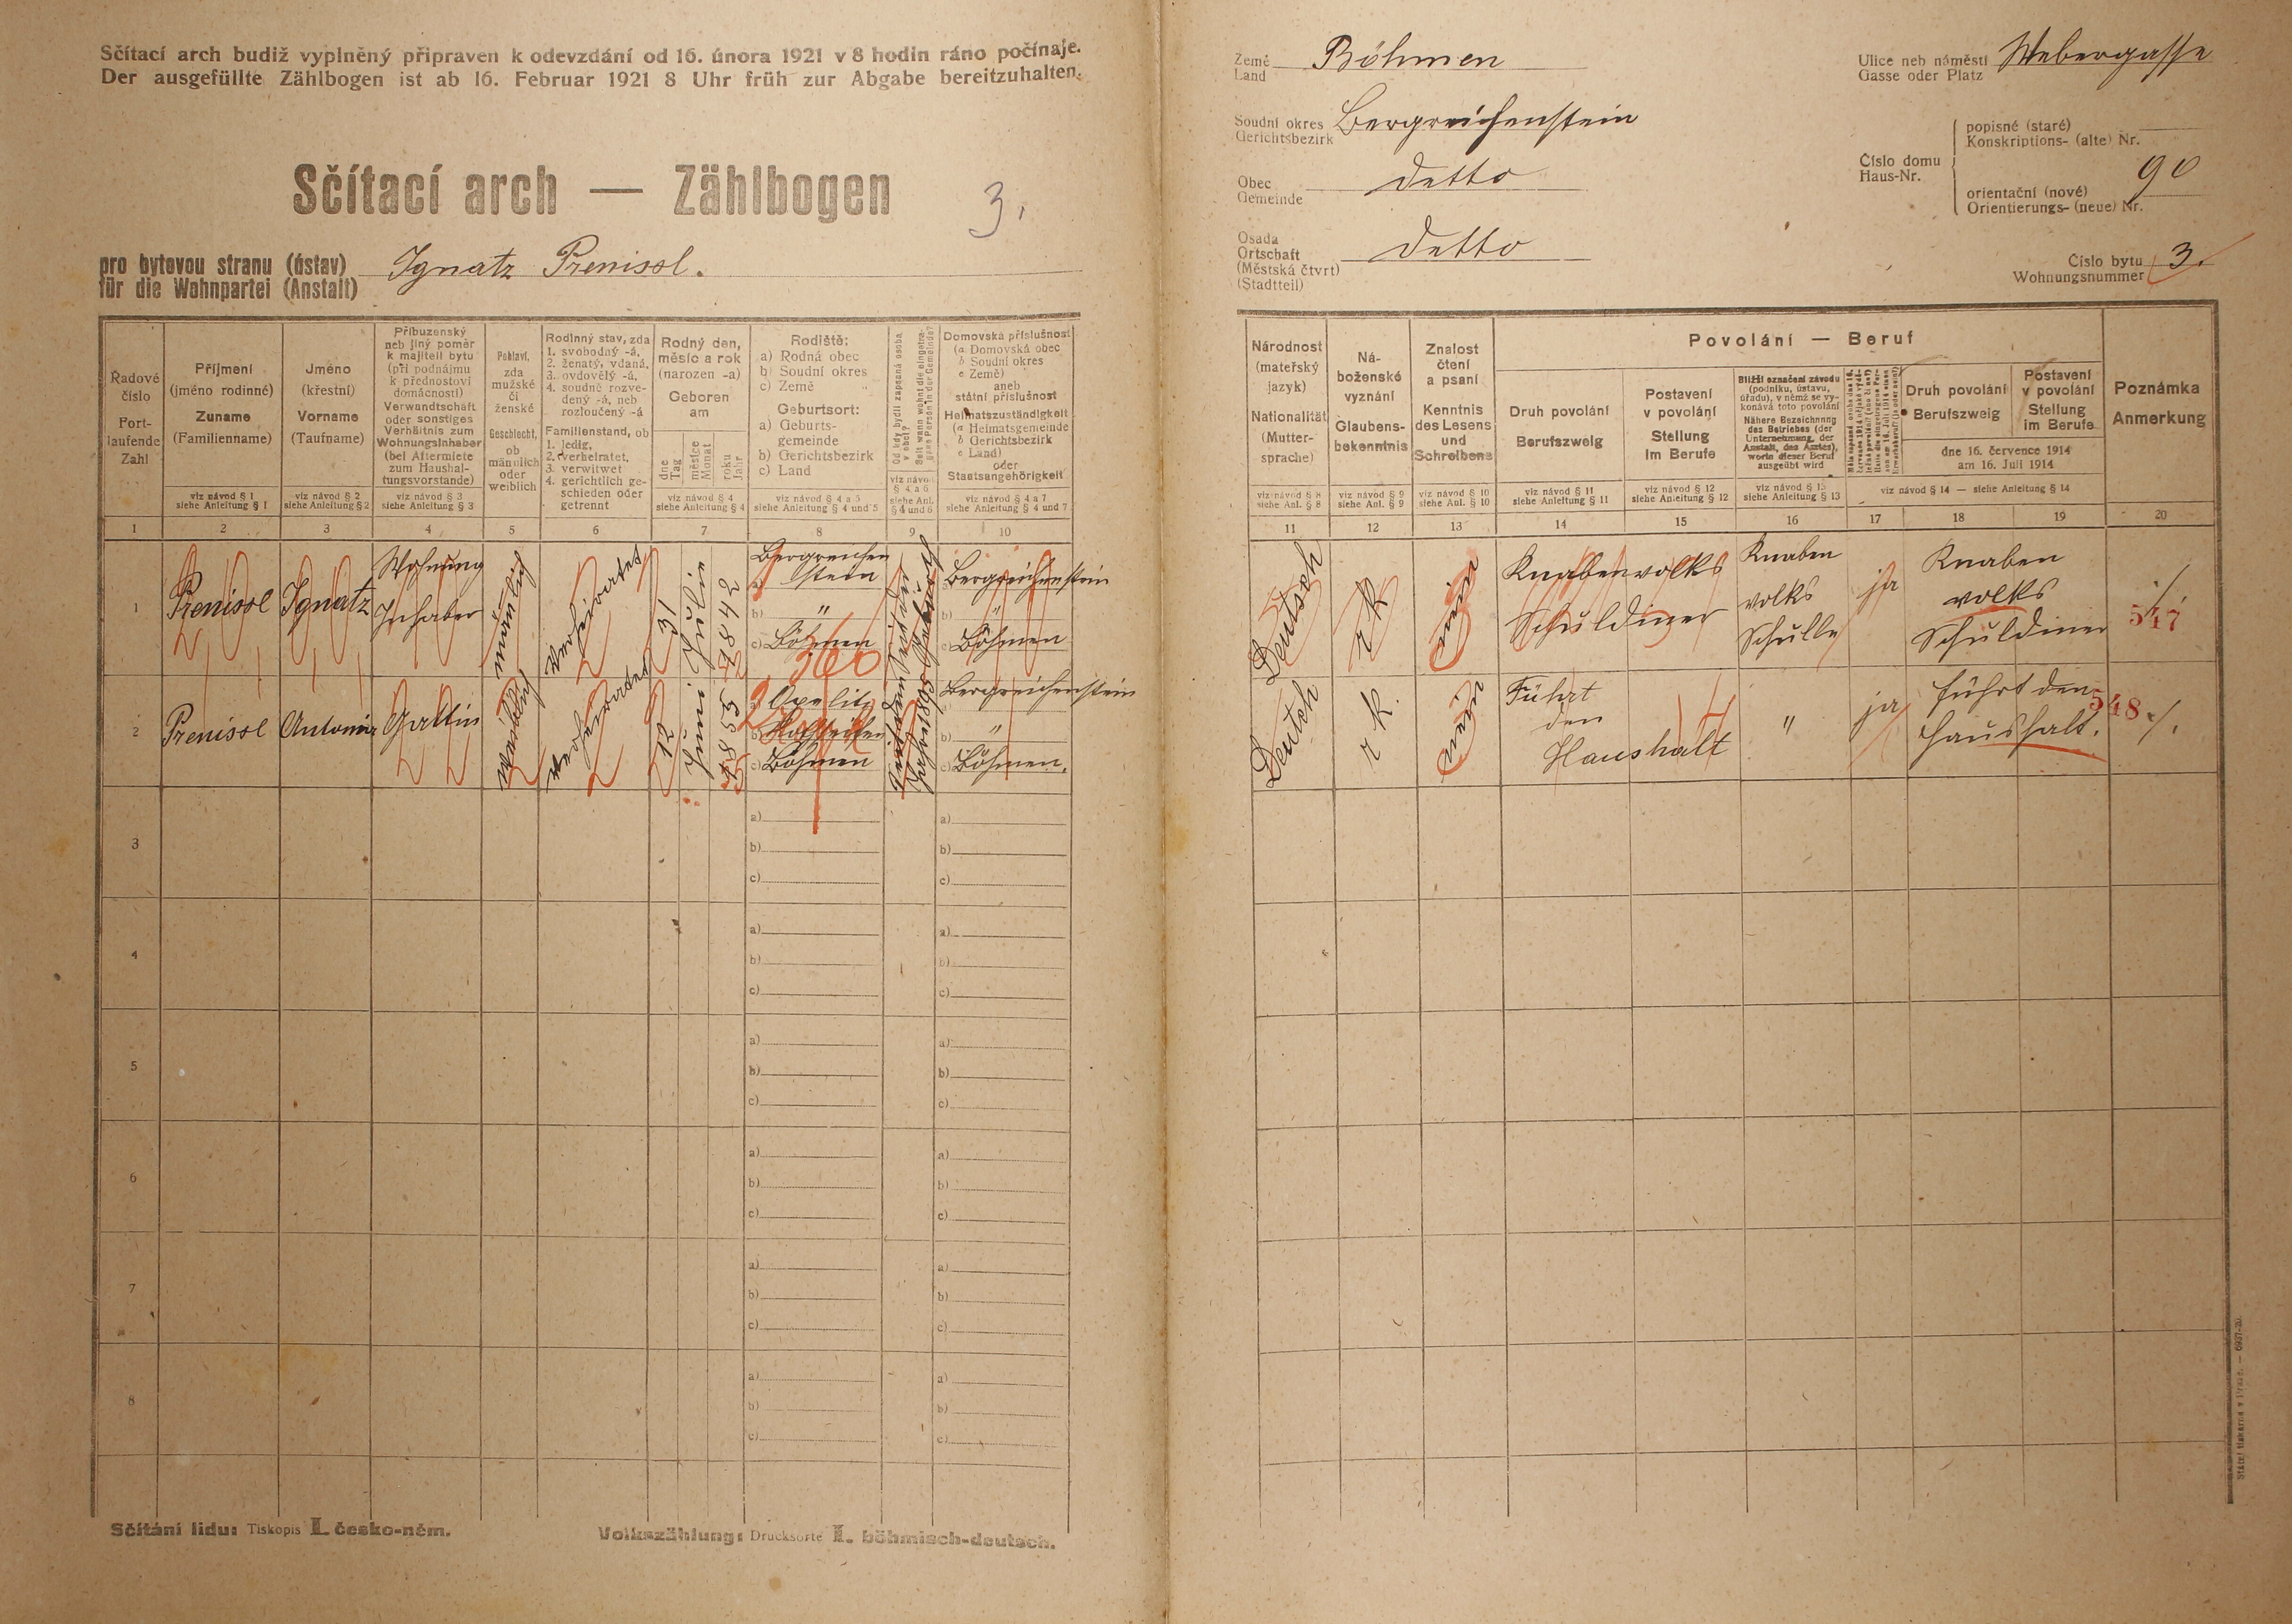 Sčítací arch budiž vyplněný připraven k odevzdání od 16. února 1921 v 8 hodin ráno počínaje.
Der ausgefüllte Zählbogen ist ab 16. Februar 1921 8 Uhr früh zur Abgabe bereitzuhalten.
Sčítací arch — Zählbogen
3.
pro bytovou stranu (ústav)
für die Wohnpartei (Anstalt)
Ignatz Prenissl.
Země
Land
Böhmen
Soudní okres
Gerichtsbezirk
Bergreichenstein
Obec
Gemeinde
detto
Osada
Ortschaft
(Městská čtvrt)
(Stadtteil)
detto
Ulice neb náměstí
Gasse oder Platz
Webergasse
Číslo domu
Haus-Nr.
popisné (staré)
Konskriptions- (alte) Nr.
90
orientační (nové)
Orientierungs- (neue) Nr.
Číslo bytu
Wohnungsnummer
3.
Řadové
číslo
Fort-
laufende
Zahl
Příjmení
(jméno rodinné)
Zuname
(Familienname)
viz návod § 1
siehe Anleitung § 1
Jméno
(křestní)
Vorname
(Taufname)
viz návod § 2
siehe Anleitung § 2
Příbuzenský
neb jiný poměr
k majiteli bytu
(při podnájmu
k přednostovi
domácnosti)
Verwandtschaft
oder sonstiges
Verhältnis zum
Wohnungsinhaber
(bei Aftermiete
zum Haushal-
tungsvorstande)
viz návod § 3
siehe Anleitung § 3
Pohlaví,
zda
mužské
či
ženské
Geschlecht,
ob
männlich
oder
weiblich
Rodinný stav, zda
1. svobodný -á,
2. ženatý, vdaná,
3. ovdovělý -á,
4. soudně rozve-
dený -á, neb
rozloučený -á
Familienstand, ob
1. ledig,
2. verheiratet,
3. verwitwet
4. gerichtlich ge-
schieden oder
getrennt
Rodný den,
měsíc a rok
(narozen -a)
Geboren
am
dne
Tag
měsíce
Monat
roku
Jahr
viz návod § 4
siehe Anleitung § 4
Rodiště:
a) Rodná obec
b) Soudní okres
c) Země
Geburtsort:
a) Geburts-
gemeinde
b) Gerichtsbezirk
c) Land
viz návod § 4 a 5
siehe Anleitung § 4 und 5
Od kdy bydlí zapsaná osoba
v obci?
Seit wann wohnt die eingetra-
gene Person in der Gemeinde?
viz návod
§ 4 a 6
siehe Anl.
§ 4 und 6
Domovská příslušnost
(a Domovská obec
b Soudní okres
c Země)
aneb
státní příslušnost
Heimatszuständigkeit
(a Heimatsgemeinde
b Gerichtsbezirk
c Land)
oder
Staatsangehörigkeit
viz návod § 4 a 7
siehe Anleitung § 4 und 7
Národnost
(mateřský
jazyk)
Nationalität
(Mutter-
sprache)
viz návod § 8
siehe Anl. § 8
Ná-
boženské
vyznání
Glaubens-
bekenntnis
viz návod § 9
siehe Anl. § 9
Znalost
čtení
a psaní
Kenntnis
des Lesens
und
Schreibens
viz návod § 10
siehe Anl. § 10
Povolání — Beruf
Druh povolání
Berufszweig
viz návod § 11
siehe Anleitung § 11
Postavení
v povolání
Stellung
im Berufe
viz návod § 12
siehe Anleitung § 12
Bližší označení závodu
(podniku, ústavu,
úřadu), v němž se vy-
konává toto povolání
Nähere Bezeichnung
des Betriebes (der
Unternehmung, der
Anstalt, des Amtes),
worin dieser Beruf
ausgeübt wird
viz návod § 13
siehe Anleitung § 13
Druh povolání
Berufszweig
Postavení
v povolání
Stellung
im Berufe
dne 16. července 1914
am 16. Juli 1914
viz návod § 14 — siehe Anleitung § 14
Poznámka
Anmerkung
1 2 3 4 5 6 7 8 9 10 11 12 13 14 15 16 17 18 19 20
1
Prenissl
Ignatz
Wohnung
Inhaber
männlich
verheiratet
31
Julie
1842
a)
Bergreichen
stein
b) "
c) Böhmen
360
Bergreichenstein
b) "
c) Böhmen
Deutsch
r k
Knabenvolks
Schuldiner
Knaben
volks
Schulle
ja
Knaben
volks
Schuldiner
547
2
Prenissl
Antonia
Gattin
weiblich
verheiratet
12
Juni
1855
a)
b)
c) Böhmen
Bergreichenstein
b) "
c) Böhmen.
Deutsch
r k.
Führt
den
Haushalt
"
ja
führt den
Haushalt.
548
3
a)
b)
c)
a)
b)
c)
4
a)
b)
c)
a)
b)
c)
5
a)
b)
c)
a)
b)
c)
6
a)
b)
c)
a)
b)
c)
7
a)
b)
c)
a)
b)
c)
8
a)
b)
c)
a)
b)
c)
Sčítání lidu: Tiskopis I. česko-něm.
Volkszählung: Drucksorte I. böhmisch-deutsch.
Státní tiskárna v Praze. — 6937-20.